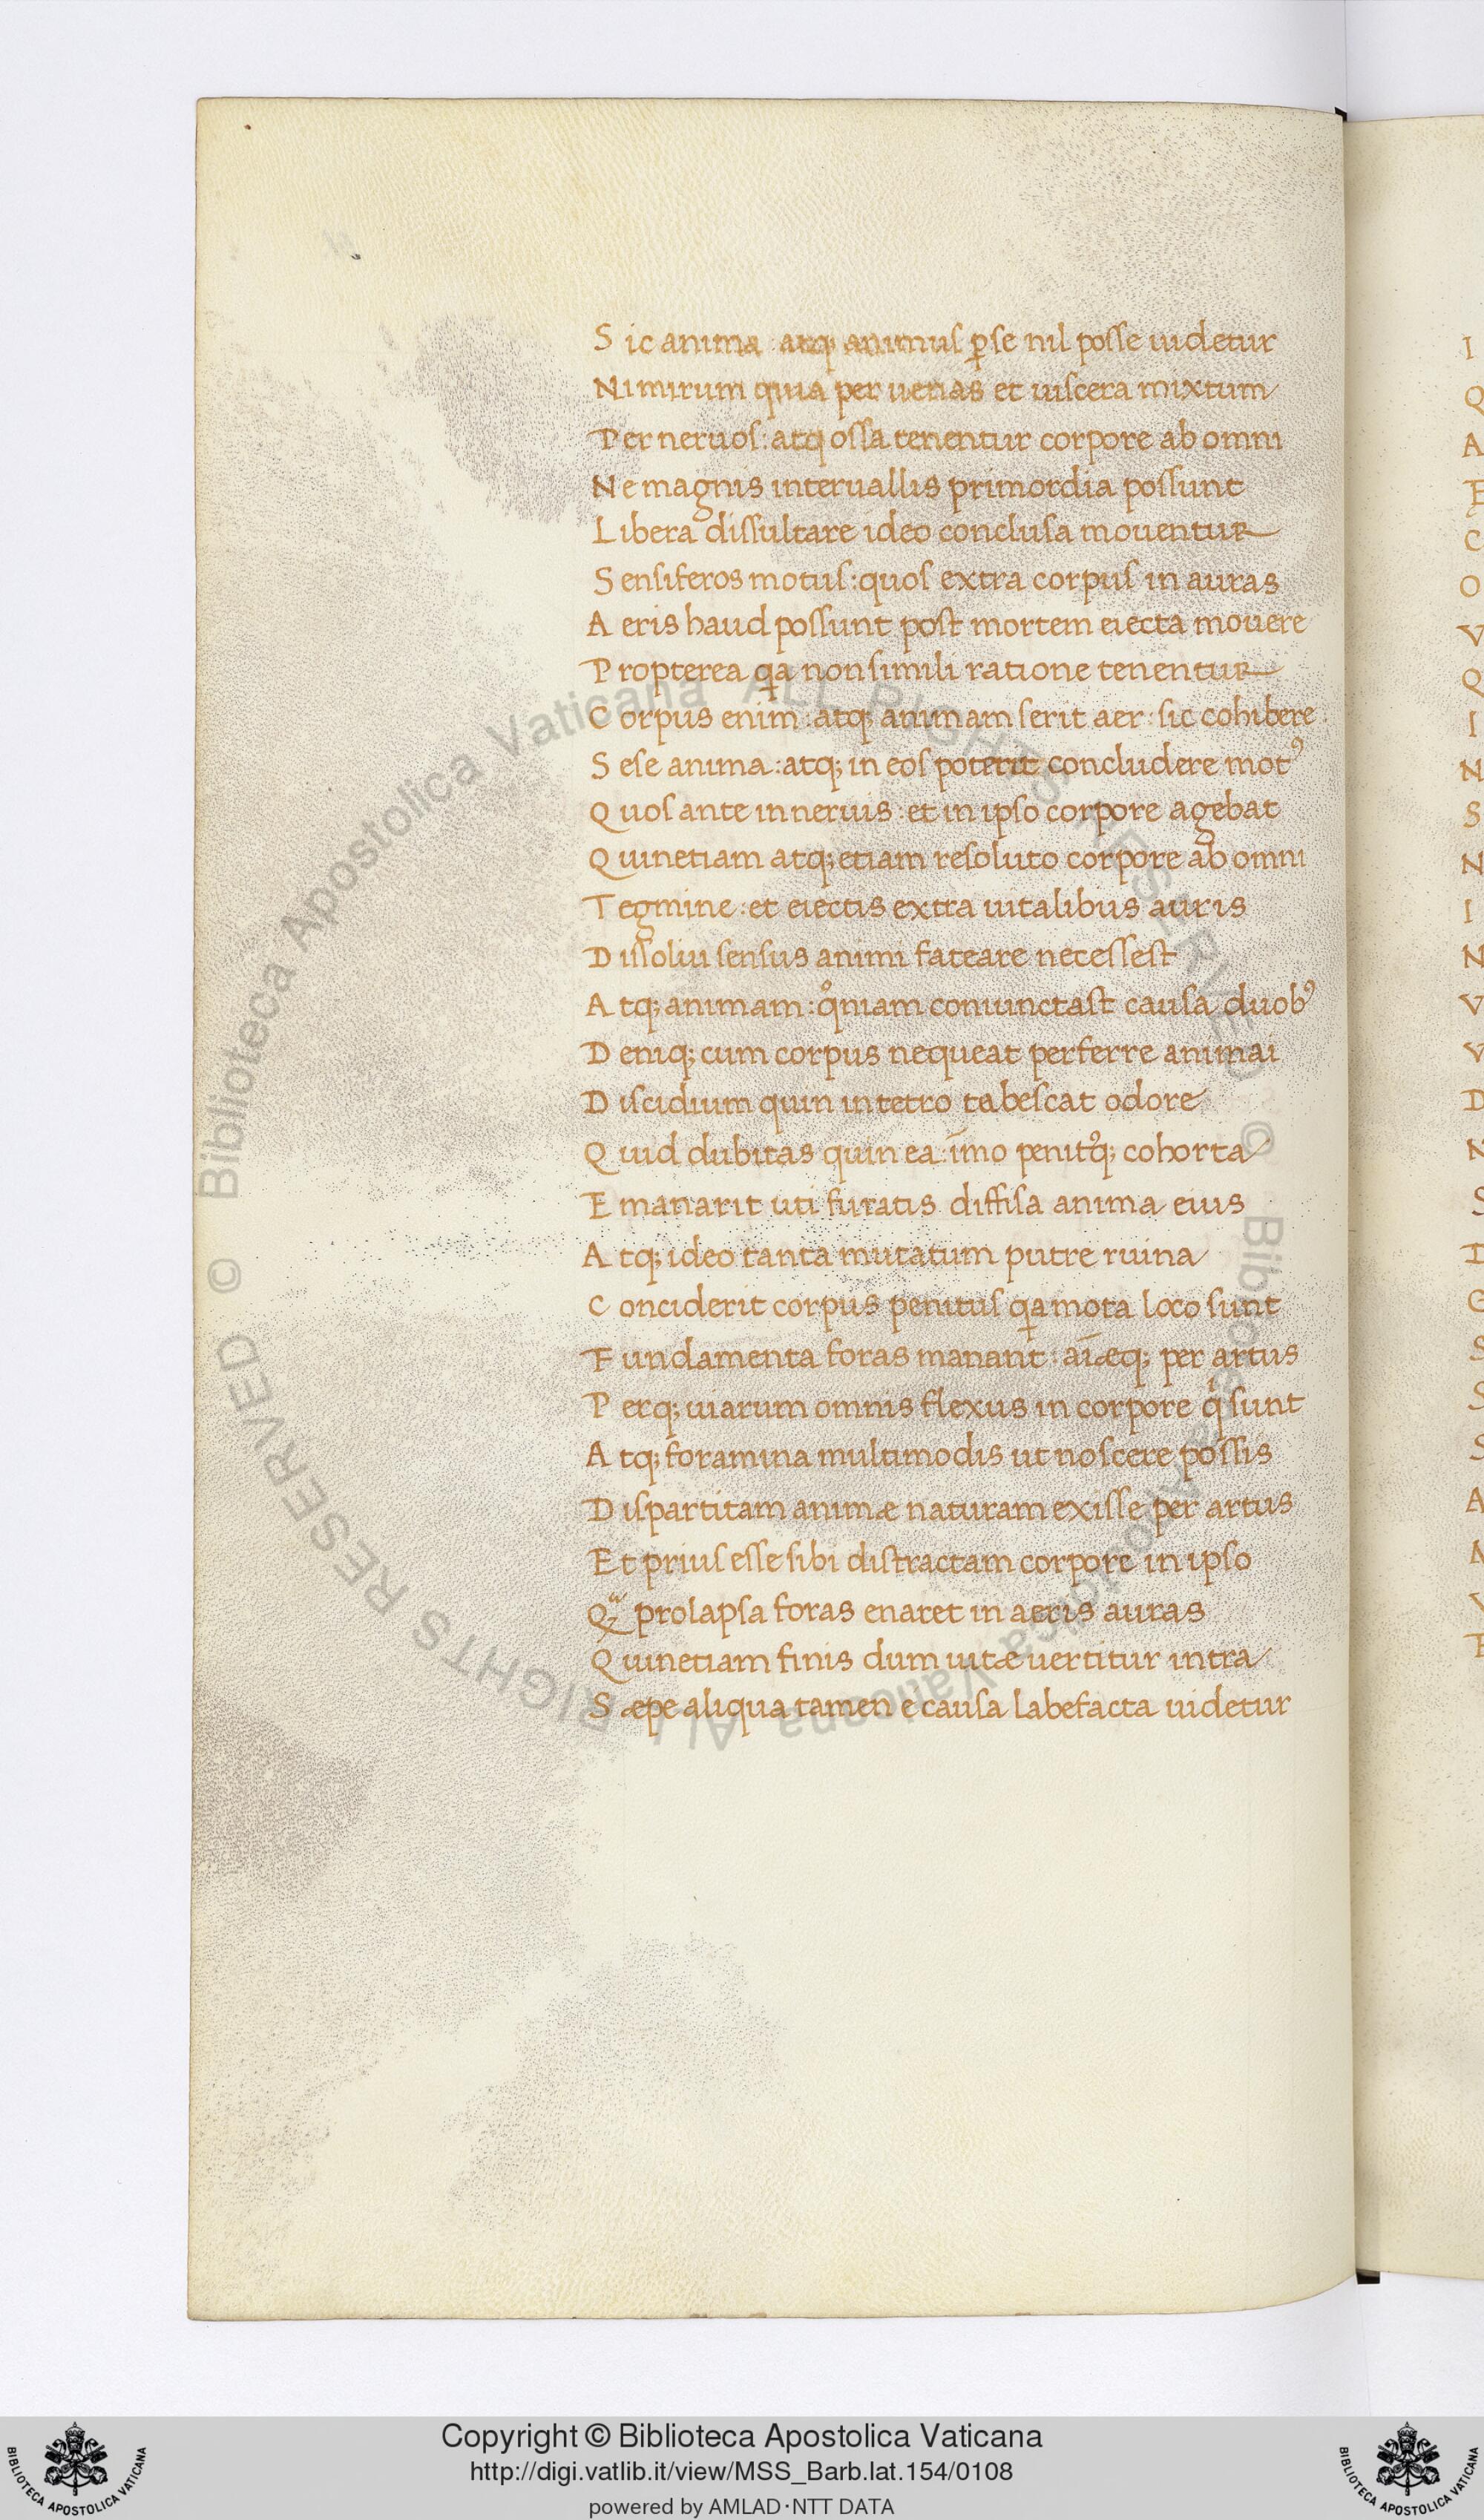 S ic anima : atq; animus ꝑ se nil posse uidetur
N imirum quia per uenas et uiscera mixtum
P er neruos : atq ossa tenentur corpore ab omni
N e magnis interuallis primordia possunt
L ibera dissultare ideo conclusa mouentur
S ensiferos motus : quos extra corpus in auras
A eris haud possunt post mortem eiecta mouere
P ropterea qa non simili ratione tenentur
C orpus enim : atq; animam serit aer : sic cohibere
S ese anima : atq; in eos poterit concludere motꝰ
Q uos ante in neruis : et in ipso corpore agebat
Q uinetiam atq; etiam resoluto corpore ab omni
T egmine : et eiectis extra uitalibus auris
D issolui sensus animi fateare necessest
A tq; animam : qͦniam coniunctast causa duobꝰ
D eniq; cum corpus nequeat perferre animai
D iscidium quin in tetro tabescat odore
Q uid dubitas quin ea : īmo penitꝰq; cohorta
E manarit uti furatis diffisa anima eius
A tq; ideo tanta mutatum putre ruina
C onciderit corpus penitus qa mota loco sunt
F undamenta foras manant : aīæq; per artus
P erq; uiarum omnis flexus in corpore qͥ sunt
A tq; foramina multimodis ut noscere possis
D ispartitam animæ naturam exisse per artus
E t prius esse sibi distractam corpore in ipso
Qᵃ prolapsa foras enaret in aeris auras
Q uinetiam finis dum uitæ uertitur intra
S æpe aliqua tamen e causa labefacta uidetur
I
Q
A
E
C
O
V
Q
I
N
S
N
I
N
V
V
D
N
S
D
G
S
S
S
A
N
V
© Biblioteca Apostolica Vaticana ALL RIGHTS RESERVED © Biblioteca Apostolica Vaticana ALL RIGHTS RESERVED
Copyright © Biblioteca Apostolica Vaticana
http://digi.vatlib.it/view/MSS_Barb.lat.154/0108
powered by AMLAD·NTT DATA
BIBLIOTECA APOSTOLICA VATICANA
BIBLIOTECA APOSTOLICA VATICANA